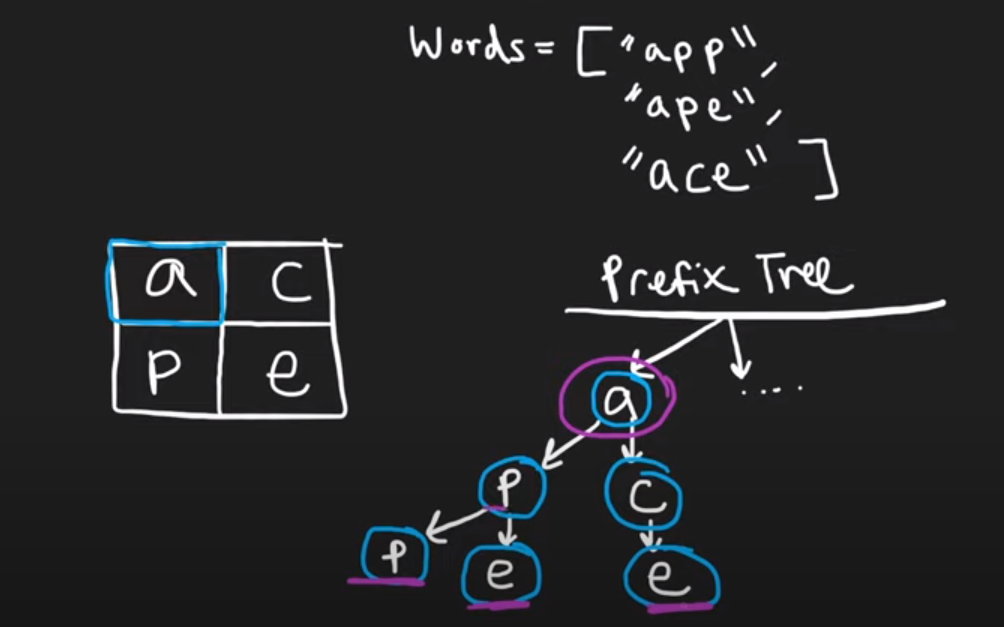 Words = ["app",
"ape",
"ace"]
a c
p e
Prefix Tree
a ....
p c
p e e